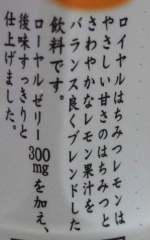 ロイヤルはちみつレモンは
やさしい甘さのはちみつと
さわやかなレモン果汁を
バランス良くブレンドした
飲料です。
ローヤルゼリー
300mgを加え、
後味すっきりと
仕上げました。